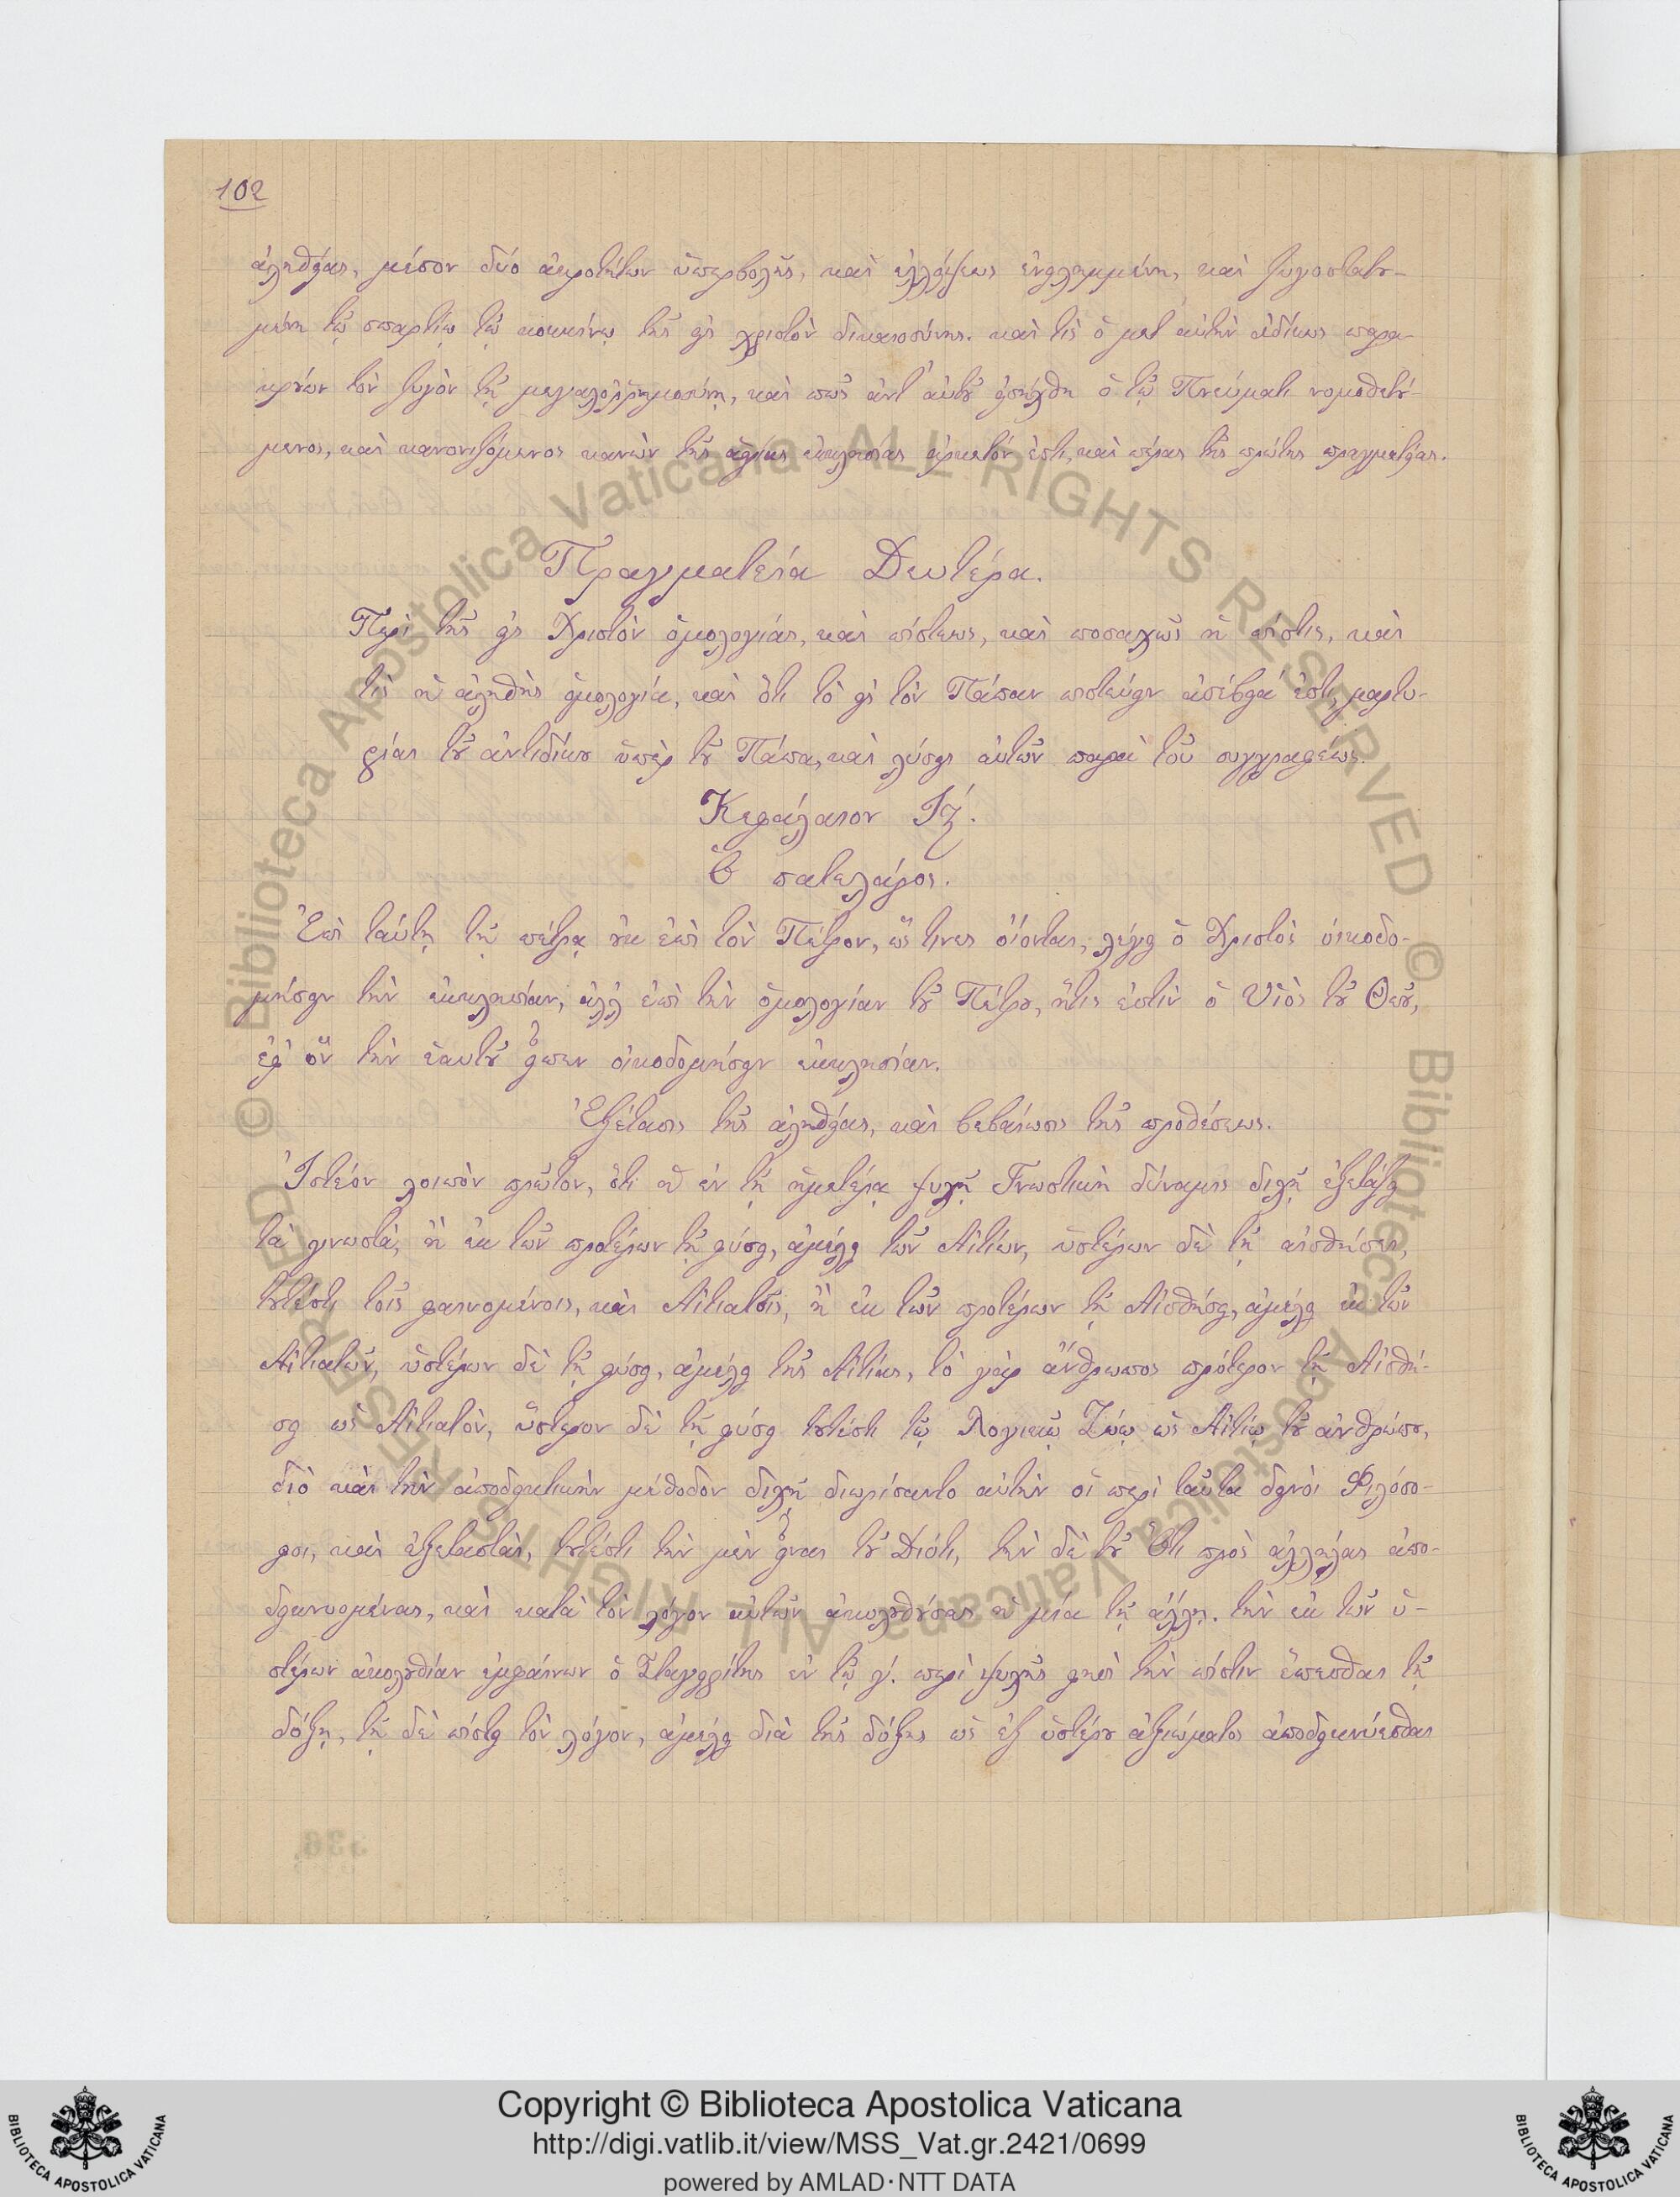 102
ἀληθείας, μέσον δύο ἀκροτήτων ὑπερβολῆς, καὶ ἐλλείψεως ἐνειλημμένη, καὶ ζυγοστατου-
μένη τῷ σπαρτίῳ τῷ κοκκίνῳ τῆς εἰς χριστὸν δικαιοσύνης. καὶ τὶς ὁ μετ' αὐτὴν ἀδίκως παρα-
κρούων τὸν ζυγὸν τῇ μεγαλορρημοσύνῃ, καὶ πῶς ἀντ' αὐτοῦ εἰσήχθη ὁ τῷ Πνεύματι νομοθετού-
μενος, καὶ κανονιζόμενος κανὼν τῆς ἁγίας ἐκκλησίας ἀρκετόν ἐστι, καὶ πέρας τῆς πρώτης πραγματείας.
Πραγματεία Δευτέρα.
Περὶ τῆς εἰς Χριστὸν ὁμολογίας, καὶ πίστεως, καὶ ποσαχῶς ἡ πίστις, καὶ
τὶς ἡ ἀληθὴς ὁμολογία, καὶ ὅτι τὸ εἰς τὸν Πάπαν πιστεύειν ἀσέβειά ἐστι, μαρτυ-
ρίας τοῦ ἀντιδίκου ὑπὲρ τοῦ Πάπα, καὶ λύσεις αὐτῶν παρὰ τοῦ συγγραφέως.
Κεφάλαιον Ιζ.
Ὁ πατελάρος.
Ἐπὶ ταύτῃ τῇ πέτρᾳ οὐκ ἐπὶ τὸν Πέτρον, ὥς τινες οἴονται, λέγει ὁ Χριστὸς οἰκοδο-
μήσειν τὴν ἐκκλησίαν, ἀλλ' ἐπὶ τὴν ὁμολογίαν τοῦ Πέτρου, ἥτις ἐστὶν ὁ Υἱὸς τοῦ Θεοῦ,
ἐφ' ὃν τὴν ἑαυτοῦ εἶπεν οἰκοδομήσειν ἐκκλησίαν.
Ἐξέτασις τῆς ἀληθείας, καὶ βεβαίωσις τῆς προθέσεως.
Ἰστέον λοιπὸν πρῶτον, ὅτι ἡ ἐν τῇ ἡμετέρᾳ ψυχῇ Γνωστικὴ δύναμις διχῇ ἐξετάζει
τὰ γνωστὰ, ἢ ἐκ τῶν προτέρων τῇ φύσει, ἀμέλει τῶν Αἰτίων, ὑστέρων δὲ τῇ αἰσθήσει,
τουτέστι τοῖς φαινομένοις, καὶ Αἰτιατοῖς, ἢ ἐκ τῶν προτέρων τῇ Αἰσθήσει, ἀμέλει ἐκ τῶν
Αἰτιατῶν, ὑστέρων δὲ τῇ φύσει, ἀμέλει τῆς Αἰτίας, τὸ γὰρ ἄνθρωπος πρότερον τῇ Αἰσθή-
σει ὡς Αἰτιατὸν, ὕστερον δὲ τῇ φύσει τουτέστι τῷ Λογικῷ Ζώῳ ὡς Αἰτίῳ τοῦ ἀνθρώπου,
διὸ καὶ τὴν ἀποδεικτικὴν μέθοδον διχῇ διωρίσαντο αὐτὴν οἱ περὶ ταῦτα δεινοὶ Φιλόσο-
φοι, καὶ ἐξετασταὶ, τουτέστι τὴν μὲν εἶναι τοῦ Διότι, τὴν δὲ τοῦ Ὅτι πρὸς ἀλλήλας ἀπο-
δεικνυομένας, καὶ κατὰ τὸν λόγον αὐτῶν ἀκολουθούσας ἡ μία τῇ ἄλλῃ. τὴν ἐκ τῶν ὑ-
στέρων ἀκολουθίαν ἐμφαίνων ὁ Σταγειρίτης ἐν τῷ γ'. περὶ ψυχῆς φησὶ τὴν πίστιν ἕπεσθαι τῇ
δόξῃ, τῇ δὲ πίστει τὸν λόγον, ἀμέλει διὰ τῆς δόξης ὡς ἐξ ὑστέρου ἀξιώματος ἀποδεικνύεσθαι
Copyright © Biblioteca Apostolica Vaticana
http://digi.vatlib.it/view/MSS_Vat.gr.2421/0699
powered by AMLAD·NTT DATA
BIBLIOTECA APOSTOLICA VATICANA
BIBLIOTECA APOSTOLICA VATICANA
© Biblioteca Apostolica Vaticana ALL RIGHTS RESERVED
© Biblioteca Apostolica Vaticana ALL RIGHTS RESERVED